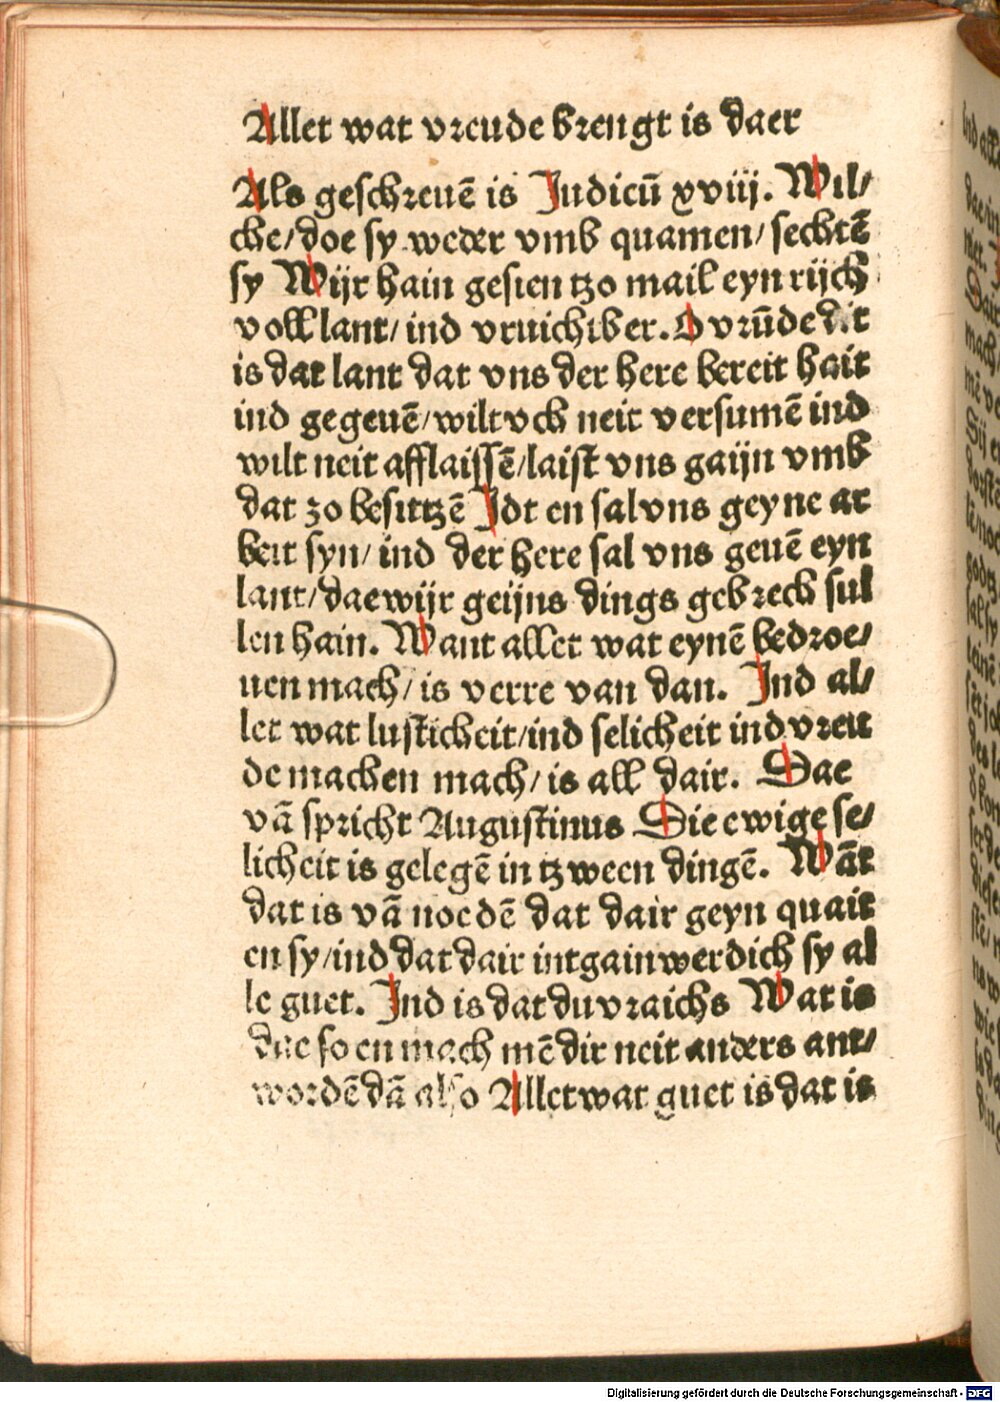 Allet wat vreude brengt is daer
Als geschreuē is Judicū xviij. Wil/
che/doe sy weder vmb quamen/sechtē
sy Wijr hain gesien tzo mail eyn rijch
voll lant/ind vruichtber. O vrūde dit
is dat lant dat vns der here bereit hait
ind gegeuē/wilt vch neit versumē ind
wilt neit afflaissē/laist vns gaijn vmb
dat zo besittzē Jdt en sal vns geyne ar
beit syn/ind der here sal vns geuē eyn
lant/dae wijr geijns dings gebrech sul
len hain. Want allet wat eynē bedroe/
uen mach/is verre van dan. Jnd al/
let wat lusticheit/ind selicheit ind vreu
de machen mach/is all dair. Dae
vā spricht Augustinus Die ewige se/
licheit is gelegē in tzween dingē. Wāt
dat is vā noedē dat dair geyn quait
en sy/ind dat dair intgainwerdich sy al
le guet. Jnd is dat du vraichs Wat is
dae so en mach mē dir neit anders ant/
wordē dā also Allet wat guet is dat is
Digitalisierung gefördert durch die Deutsche Forschungsgemeinschaft - DFG